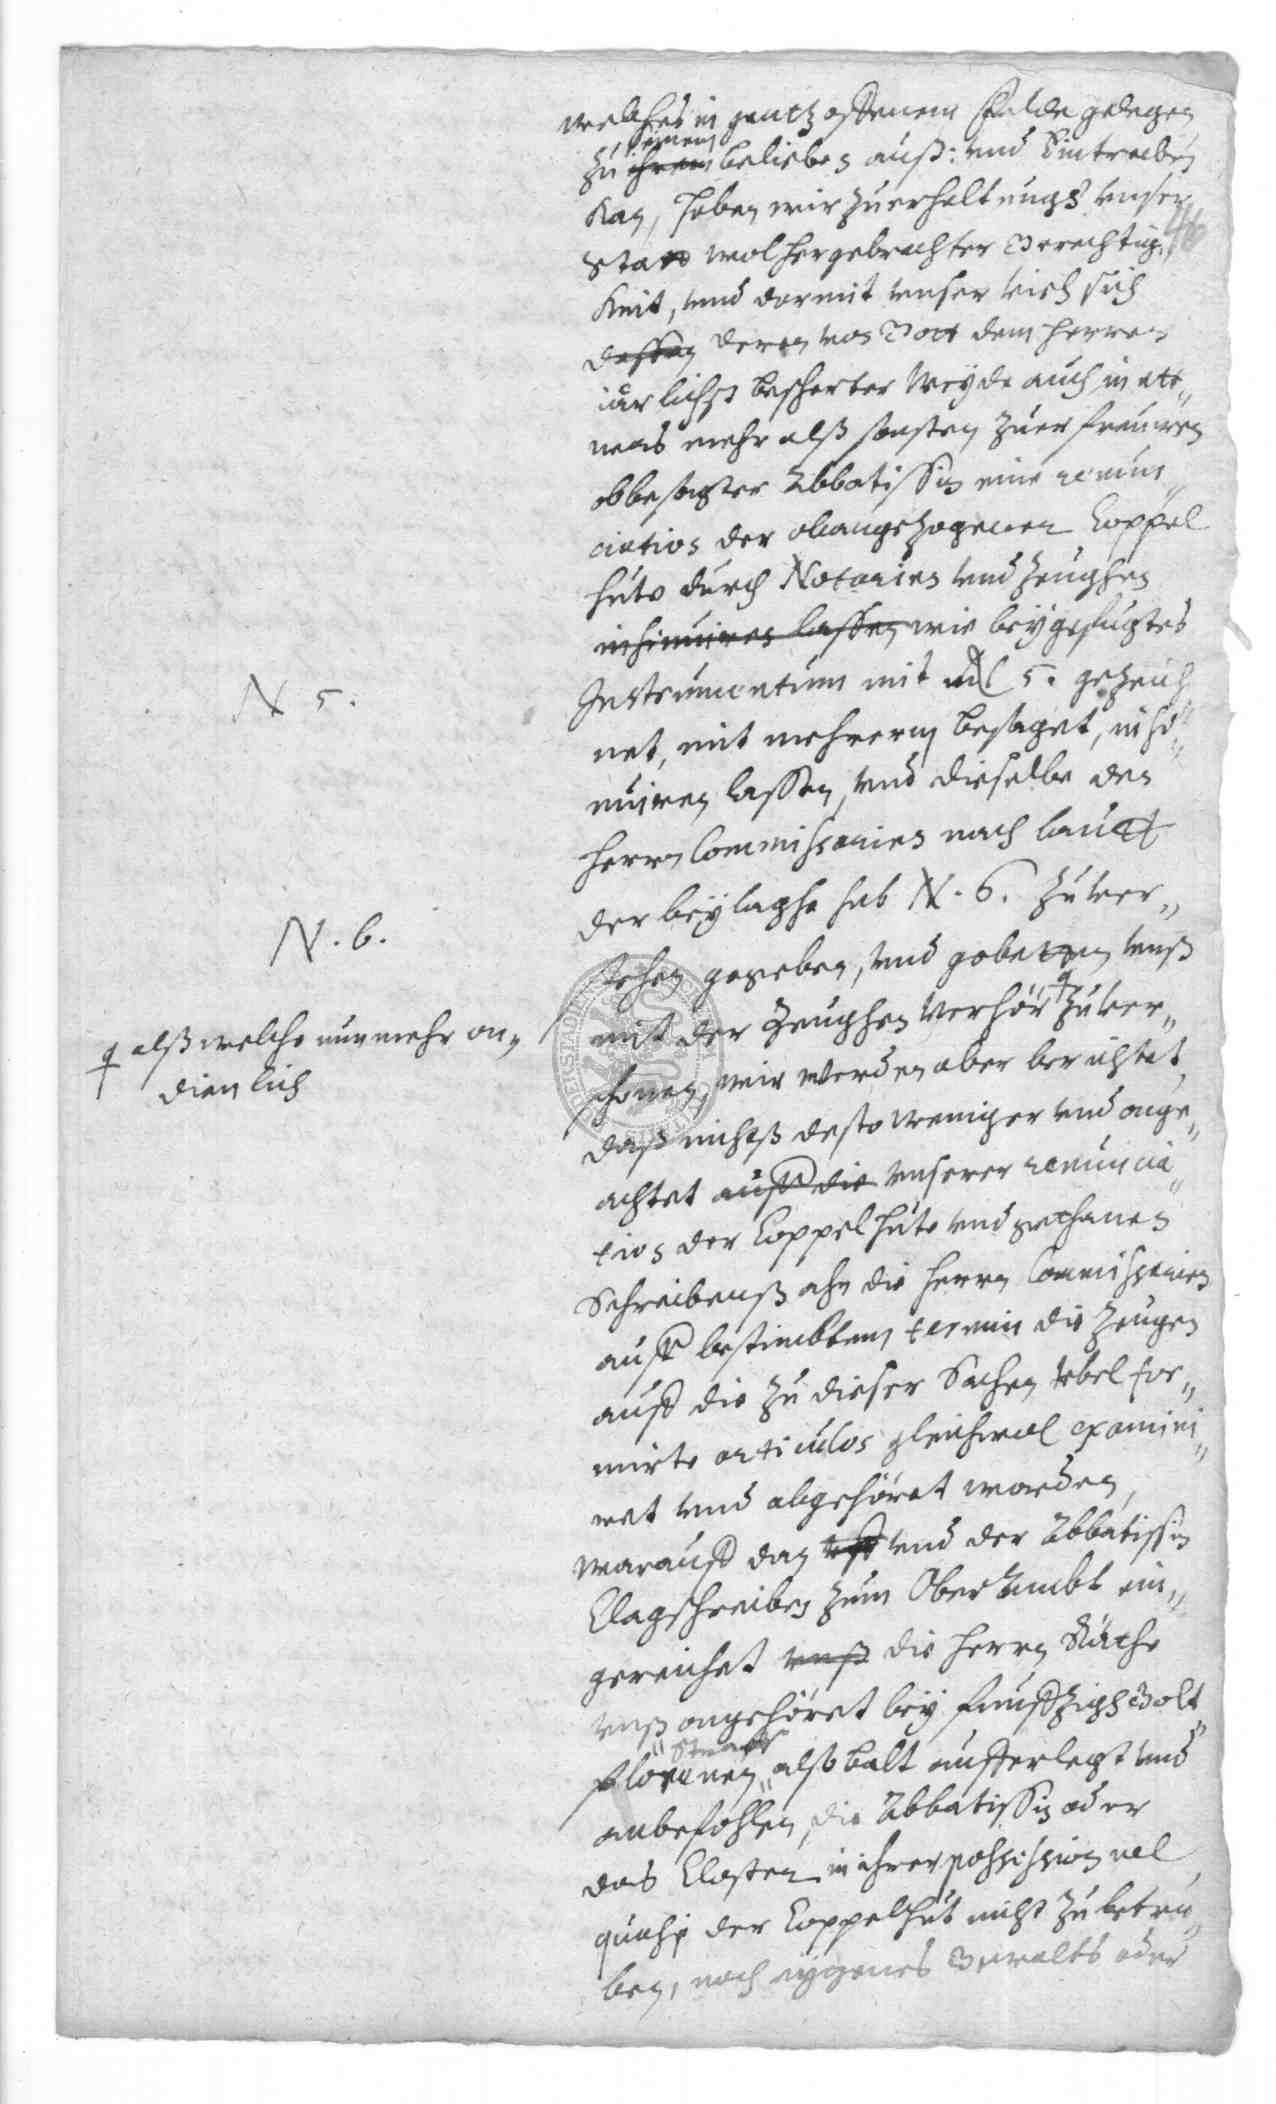 welches in gantz offenem Felde gelegen
einem
zu ihrem belieben auß: und Eintreiben
kan, haben wir zuerhaltungs unser
46
Stadt wolhergebrachter Gerechtig„
keit, und darmit unser Vieh sich
dessen deren von Gott dem Herren
iärlichst bescherter Weyde auch in ett„
was mehr alß sonsten zuerfreuwen
obbesagter Abbatissin eine renun„
ciation der obangezogenen Coppel
hute durch Notarien und Zeughen
insinuiren lassen wie beygefugtes
Instrumentum mit N 5. gezeich„
N 5.
net, mit mehrerm besaget, insi„
nuiren lassen, und dieselbe den
Herrn Commissarien nach lautt
der beylaghe sub N. 6. zuver„
N. 6.
stehen gegeben, und gebetten unß
mit der Zeughen Verhör zuver„
alß welche nunmehr on„
dienlich
schonen, wir werden aber berichtet,
daß nichtß desto weniger und onge„
achtet auff die unserer renuncia„
tion der Coppelhute und gethanen
Schreibenß ahn die Herrn Commissarien
auff bestimbtem termin die Zeugen
auff die zu dieser Sachen vbel for„
mirte articulos gleichwol examini„
ret und abgehöret worden,
warauff dan und der Abbatissin
Clagschreiben zum OberAmbt ein„
gereichet unß die Herrn Räthe
unß ongehöret bey funffzigh Golt
Straff
florenen alßbalt aufferlegt und
anbefohlen, die Abbatissin oder
das Closter in ihrer possession vel
quasi der Coppelhut nicht zubetrü„
ben, noch eygenes Gewalts oder